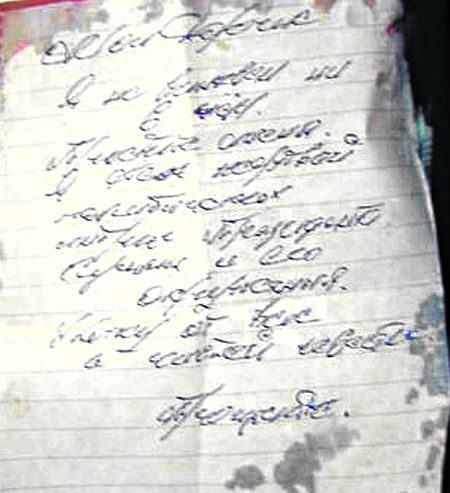 Мои дорогие
Я не виновен ни
в чём.
Простите меня.
Я стал жертвой
политических
интриг Президента
и его
окружения.
Ухожу от Вас
с чистой совестью.
Прощайте.